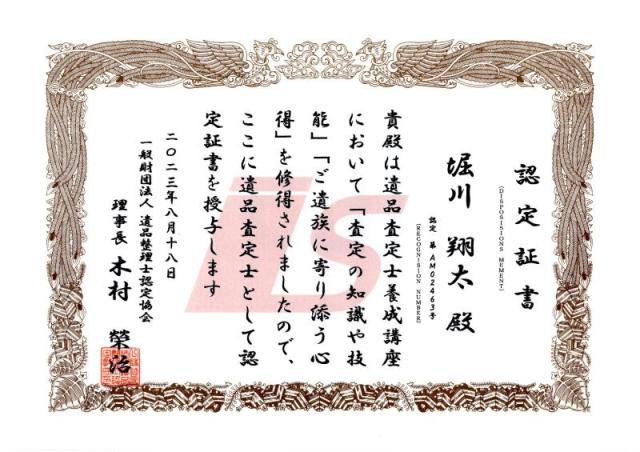 認定証書
(DISPOSISIONS MEMENT)
認定 第 AM02463号
(RECOGNISION NUMBER)
堀川 翔太 殿
貴殿は遺品査定士養成講座
において「査定の知識や技
能」「ご遺族に寄り添う心
得」を修得されましたので、
ここに遺品査定士として認
定証書を授与します
二〇二三年八月十八日
一般財団法人 遺品整理士認定協会
理事長 木村 榮治
IS